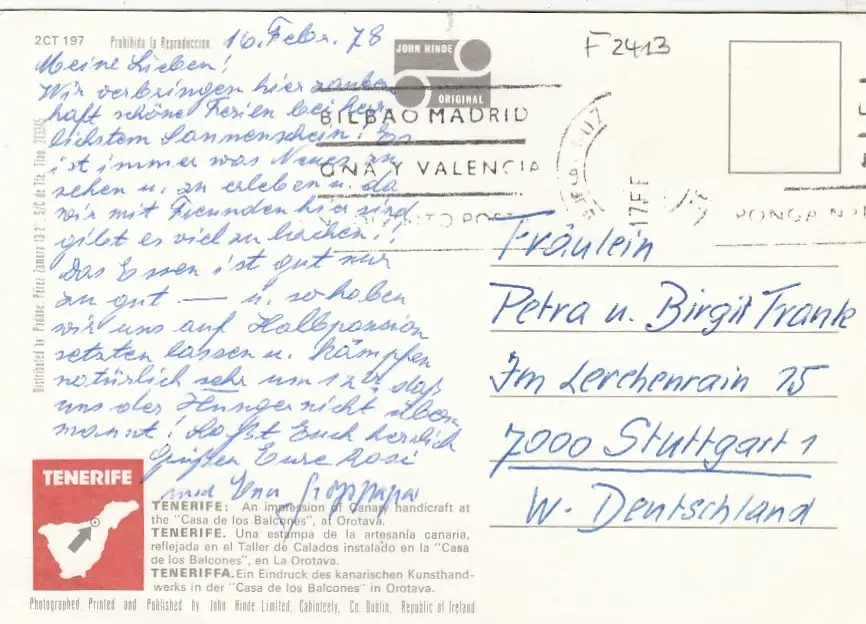 2CT 197
Prohibida la Reproduccion
16. Febr. 78
Meine Lieben!
Wir verbringen hier zauber
haft schöne Ferien bei herr
lichstem Sonnenschein! Es
ist immer was Neues zu
sehen u. zu erleben u. da
wir mit Freunden hier sind
gibt es viel zu lachen!!
Das Essen ist gut nur
zu gut — u. so haben
wir uns auf Halbpension
setzten lassen u. kämpfen
natürlich sehr um 12 daß
uns der Hunger nicht über
mannt! Laßt Euch herzlich
Grüßen Eure Rosi
und Euer
JOHN HINDE
ORIGINAL
F 2413
BILBAO MADRID
ONA Y VALENCIA
17 FF
PONGA
Fräulein
Petra u. Birgit Frank
Im Lerchenrain 75
7000 Stuttgart 1
W. Deutschland
Distributed by: Padane, Perez Zamora
TENERIFE
TENERIFE: An impression of Canary handicraft at
the "Casa de los Balcones", at Orotava.
TENERIFE. Una estampa de la artesanía canaria,
reflejada en el Taller de Calados instalado en la "Casa
de los Balcones", en La Orotava.
TENERIFFA. Ein Eindruck des kanarischen Kunsthand-
werks in der "Casa de los Balcones" in Orotava.
Photographed, Printed and Published by John Hinde Limited, Cabinteely, Co. Dublin, Republic of Ireland